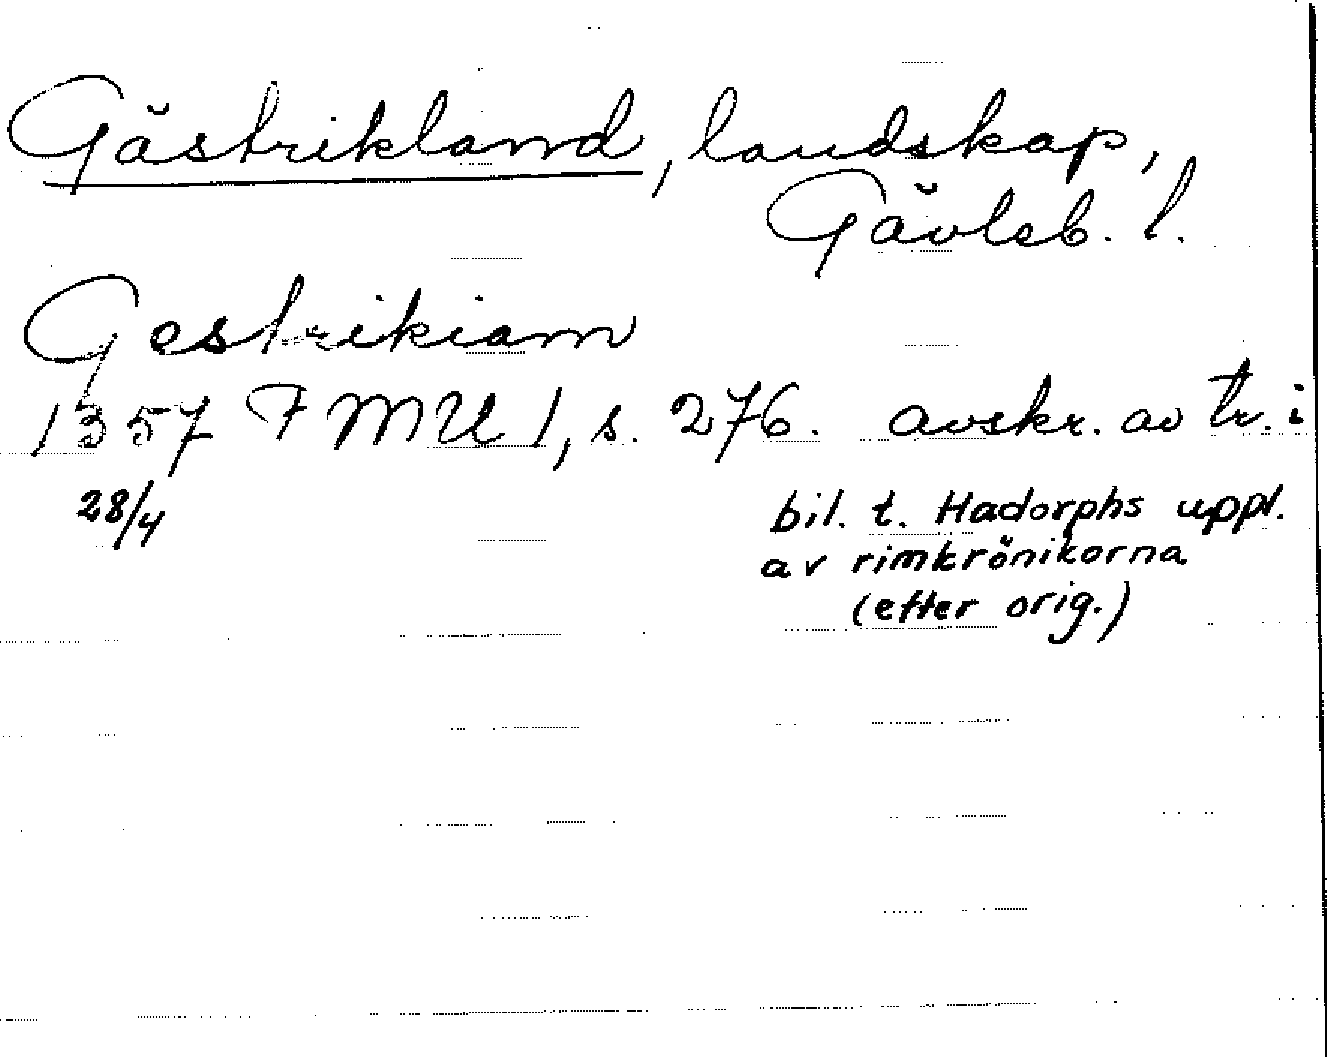 Gästrikland, landskap,
Gävleb. l.
Gestrikiam
1357 FMU 1, s. 276. avskr. av tr. i
28/4 bil. t. Hadorphs uppl.
av rimkrönikorna
(efter orig.)